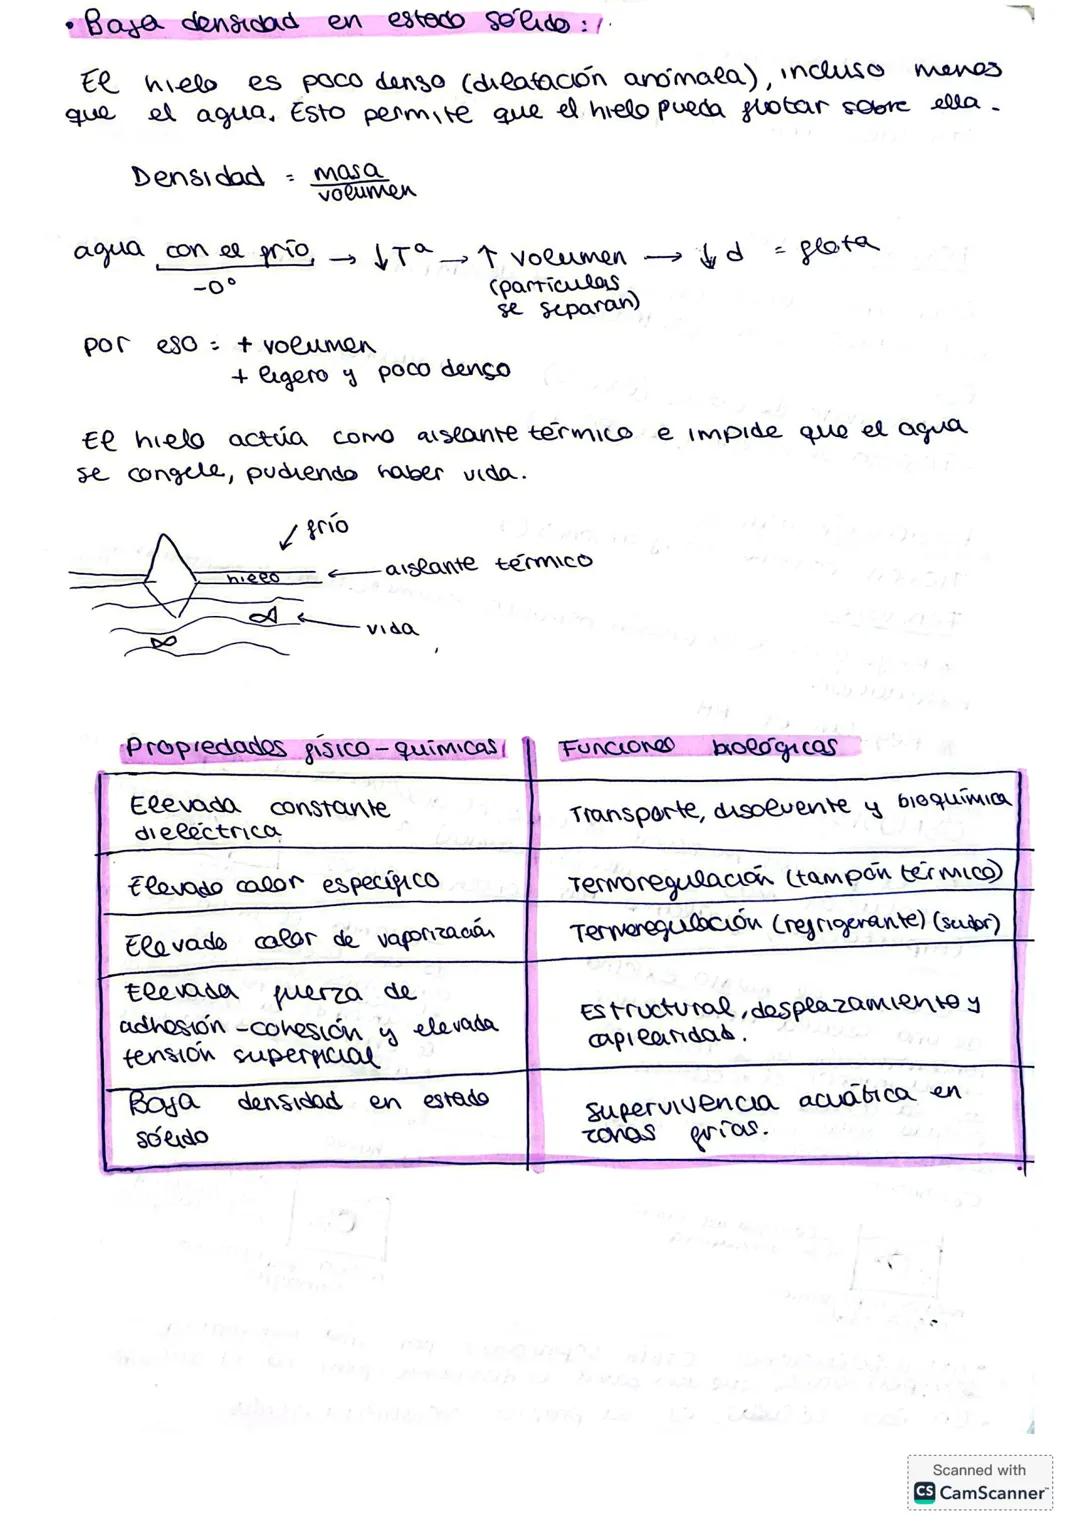 • Baja densidad en estado sólido:
El hielo es poco denso (dilatación anómala), incluso menos
que el agua. Esto permite que el hielo pueda flotar sobre ella.
Densidad = masa
volumen
agua con el frío → ↓Tª → ↑ volumen → ↓ d = flota
-0°
(partículas
se separan)
por eso = + volumen
+ ligero y poco denso
El hielo actúa como aislante térmico e impide que el agua
se congele, pudiendo haber vida.
frío
hielo ← aislante térmico
← vida
Propiedades físico-químicas Funciones biológicas
Elevada constante
dieléctrica
Transporte, disolvente y bioquímica
Elevado calor específico
Termoregulación (tampón térmico)
Elevado calor de vaporización
Termoregulación (refrigerante) (sudor)
Elevada fuerza de
adhesión-cohesión y elevada
tensión superficial
Estructural, desplazamiento y
capilaridad.
Baja densidad en estado
sólido
Supervivencia acuática en
zonas frías.
Scanned with
CS CamScanner